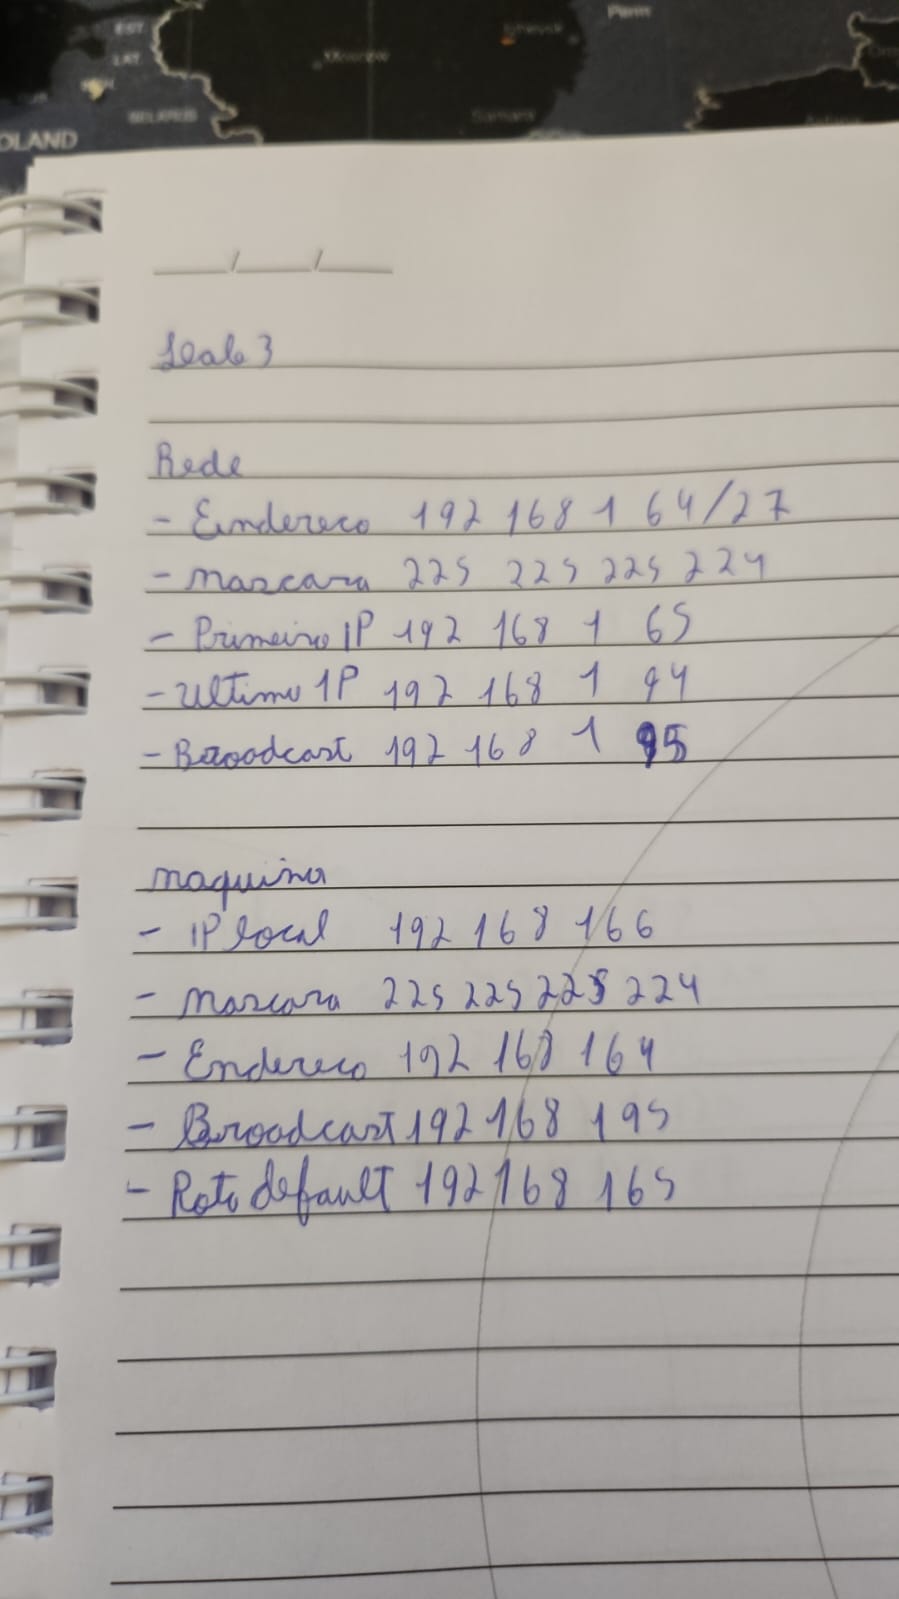 Perm
EST
LAT
Moscow
BELARUS
Samara
OLAND
Rede
- Eindereco 192 168 1 64/27
- mascara 225 225 225 224
- Primeiro IP 192 168 1 65
- Ultimo IP 192 168 1 94
- Broodcast 192 168 1 95
maquina
- IP local 192 168 166
- mascara 225 225 225 224
- Endereco 192 168 164
- Broodcast 192 168 195
- Rota default 192 168 165